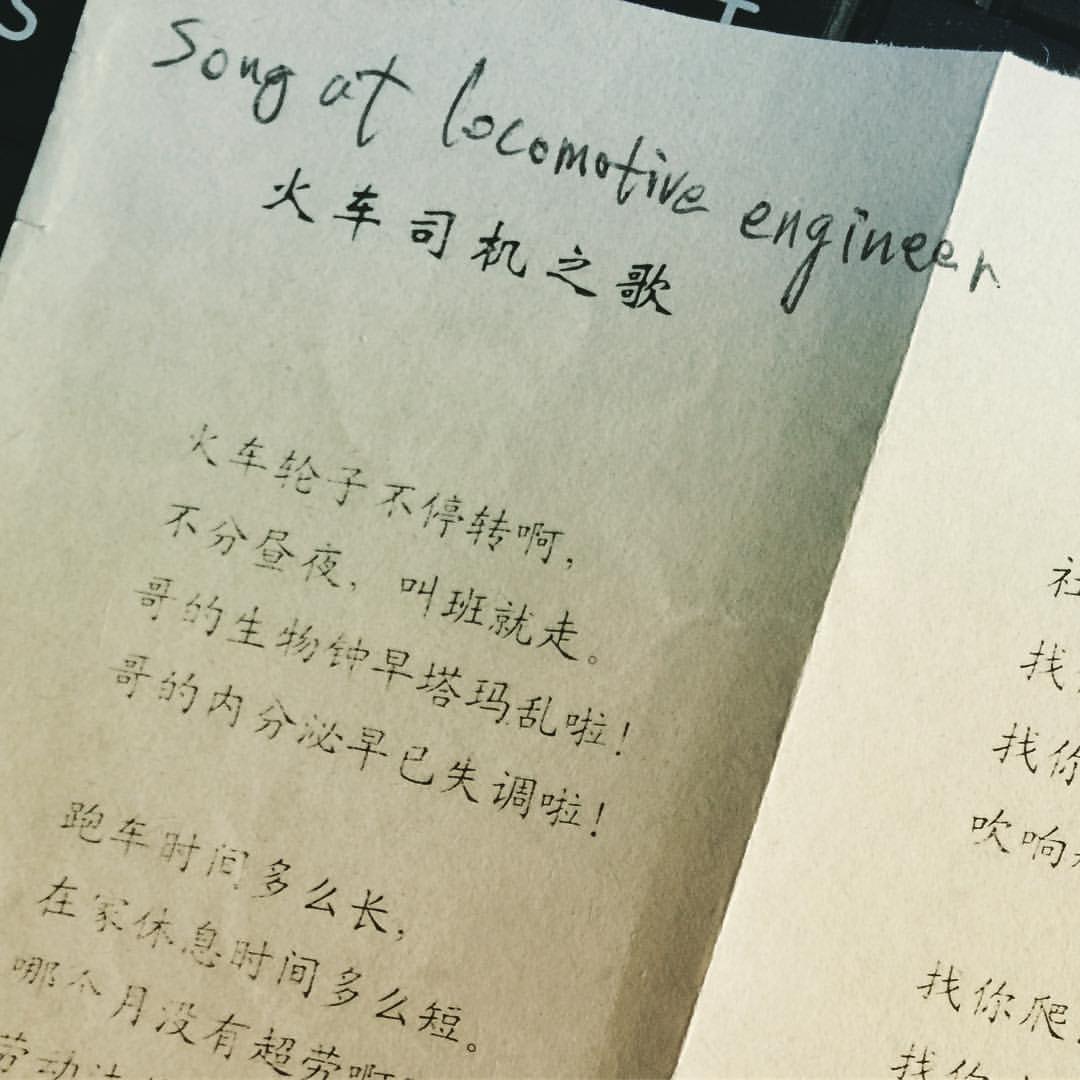 Song at locomotive engineer
火车司机之歌
火车轮子不停转啊，
不分昼夜，叫班就走。
哥的生物钟早塔玛乱啦！
哥的内分泌早已失调啦！
跑车时间多么长，
在家休息时间多么短。
哪个月没有超劳啊
劳动法
社
找
找你
吹响
找你爬
找你